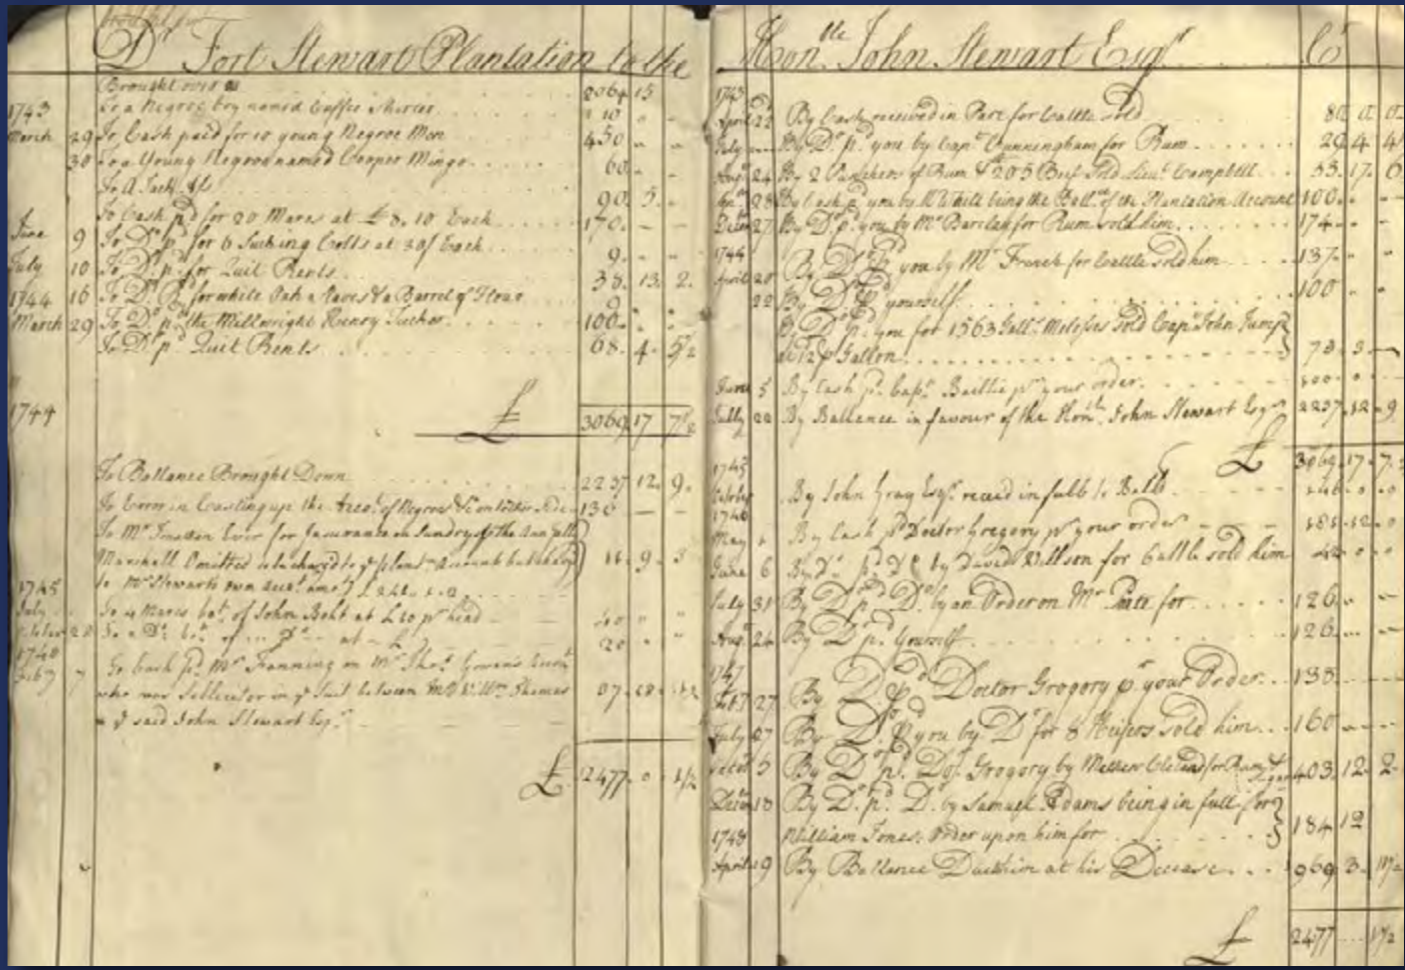 Dr Fort Stewart Plantation to the
Brought over 2064 15
1743 To a Negroe boy named Cuffee Sheries 110 " "
March 29 To Cash paid for 10 young Negroe Men 450 - -
30 To a Young Negroe named Cooper Mingo 60 - -
To A Jack Ass 90. 5 -
To Cash pd for 20 Mares at £8. 10 Each 170. - -
June 9 To Do. pd for 6 Sucking Colts at 30/ Each 9. - -
July 10 To Do. pd for Quit Rents 38. 13. 2.
1744 16 To Do. pd for white Oak Staves & a Barrel of Flour 9.
March 29 To Do. pd the Millwright Henry Tucker 100.
To Do. pd Quit Rents 68. 4. 5½
1744 £ 3069 17 7½
To Ballance Brought Down 2237 12. 9.
To Error in Casting up the Acct. of Negroes &c on other Side 130 - -
To Mr for Insurance on Sundrys the Ann
Marshall Omitted 11. 9. 3
to Mr Stewarts own acct.
1745
July To 4 Mares bot. of John Boht at £10 pr head 40 " "
October 28 To 2 Do. bot. of Do. at £ 20 " "
1746
Feby 7 To Cash pd. Mr Fanning on Mr Thos.
who was Sollicitor in ye Suit between Mr Willm.
& ye said John Stewart Esqr.
£ 2477. 0 1½
Honble John Stewart Esqr Cr
1743
April 22 By Cash received in Part for Cattle Sold 80. 0. 0.
July By Do. pd. you by Capt. Cunningham for Rum 29. 4. 4
Augt 24 By 2 Puncheons of Rum & 205 Beef Sold Lieut. Campbell 33. 17. 6
28 By Cash pd you by Mr White being the Ballce of the Plantation Account 100. - -
Decem 27 By Do. pd. you by Mr Barclay for Rum sold him 174. -
1744
April 20 By Do. pd you by Mr French for Cattle sold him 137. "
22 By Do. pd yourself 100 " "
By Do. pd. you for 1563 Galls. Melosses Sold Capt John Jump
at 12 pr Gallon 78. 3. -
June 5 By Cash pd. Capt. Baillie pr your order 100 . 0 . -
July 22 By Ballance in favour of the Honble. John Stewart Esqr 2237. 12. 9.
£ 3069. 17. 7.½
1745
October By John Gray Esqr. receid in full
1746
May By Cash pd Doctor Gregory pr your order
June 6 By Do. pd Do by David Willson for Cattle sold him 42 0 0
July 31 By Do. pd Do. by an Order on Mr for 126 " "
Augt. 24 By Do. pd. Yourself 126 - -
1747
Feby 27 By Do. pd Doctor Gregory pr your Order 138 - -
July 27 By Do. pd you by Do for 8 Heifers sold him 160 - -
Octor 5 By Do pd. Dor. Gregory by Mathew for Rum & Sugar 403 12. 2.
Decem 18 By Do. pd. Do. by Samuel Adams being in full for
1748 William Jones. Order upon him for 184 12
April 9 By Ballance Due him at his Decease 969 3. 11½
£ 2477 - 1½